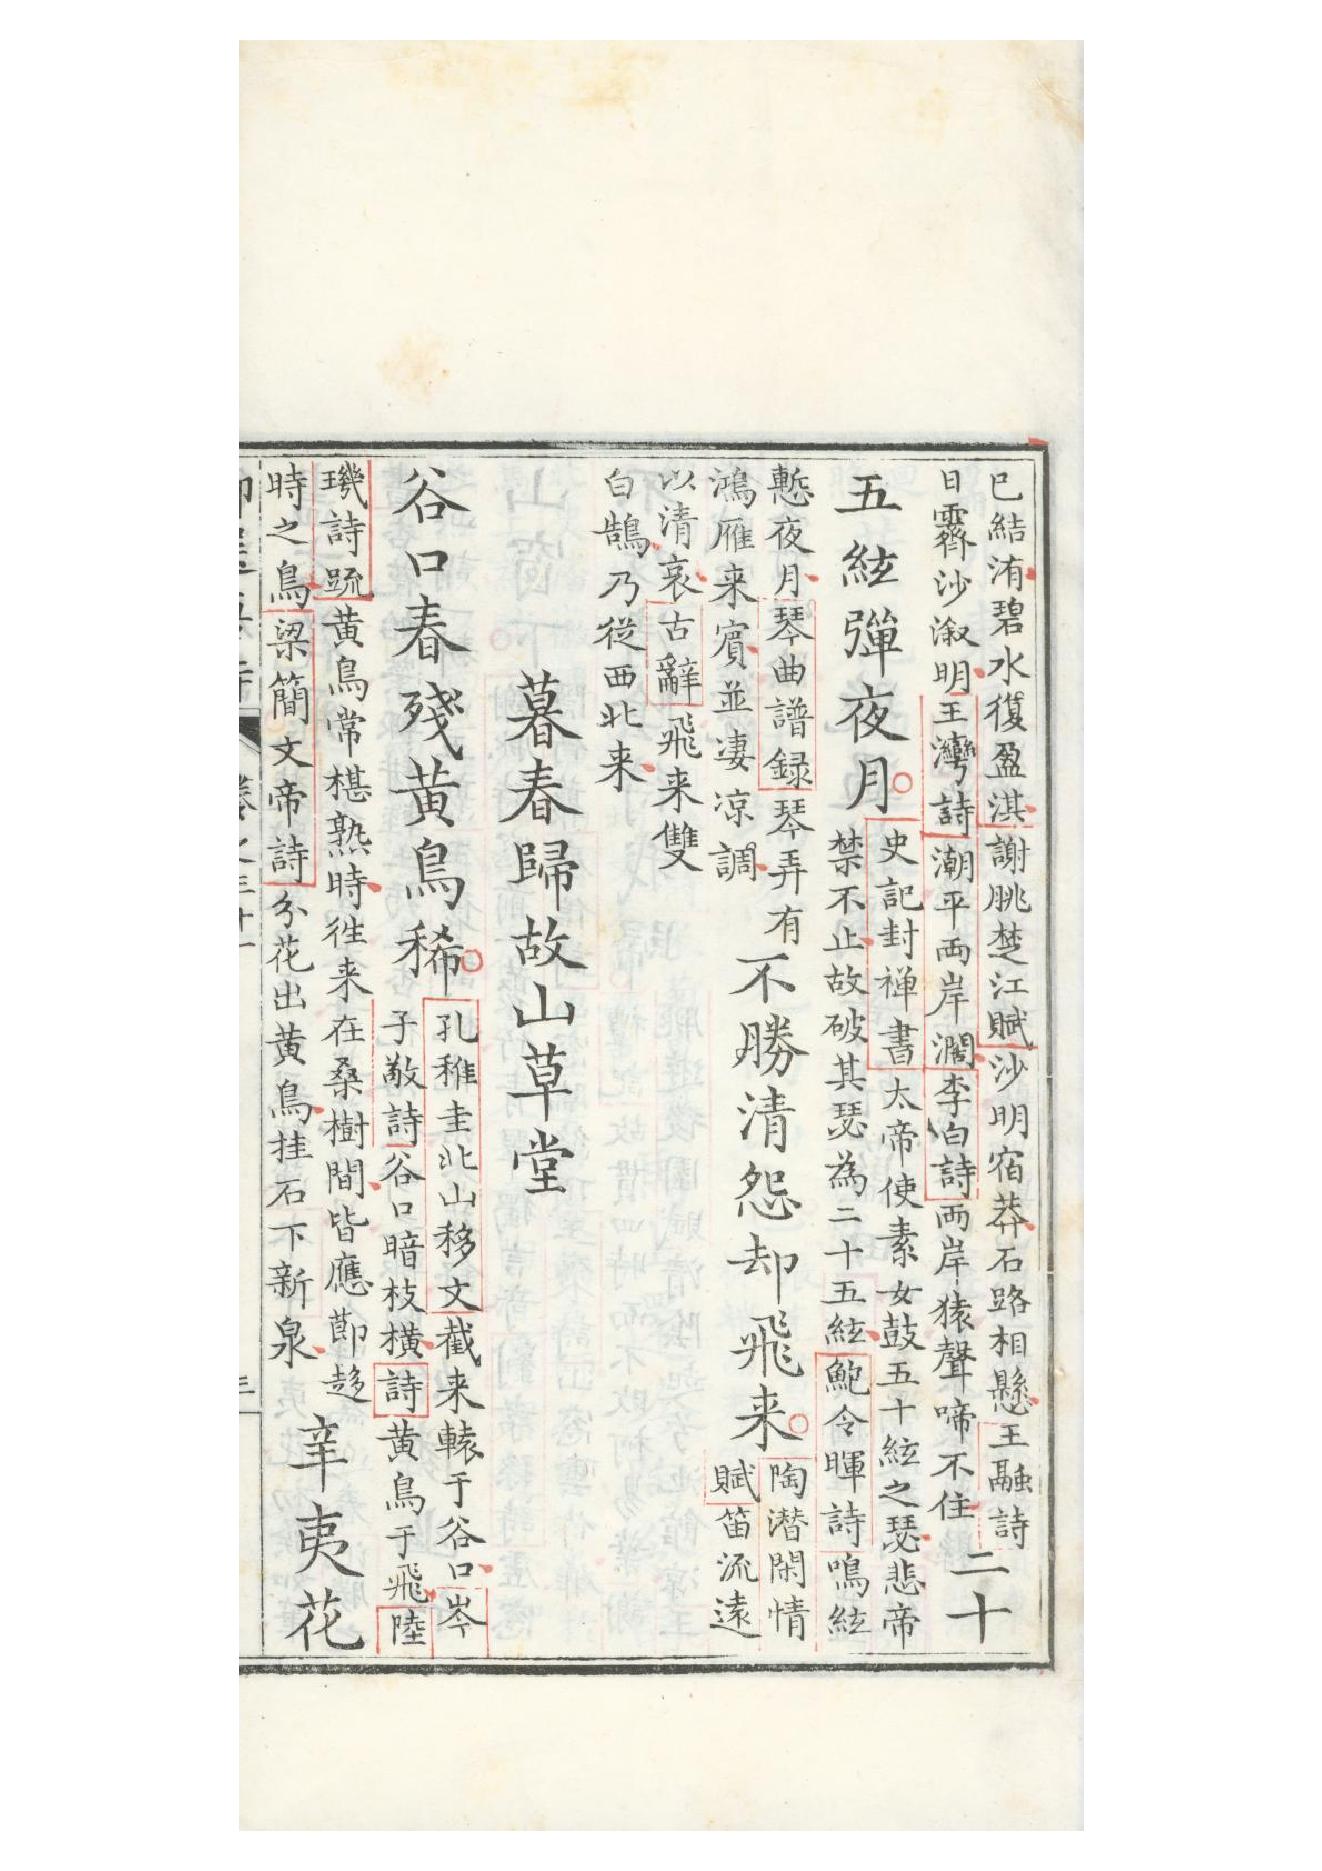 已結洧碧水復盈淇謝朓楚江賦沙明宿莽石路相懸王融詩
日霽沙溆明王灣詩潮平兩岸濶李白詩兩岸猿聲啼不住
二十
五絃彈夜月
史記封禅書太帝使素女鼓五十絃之瑟悲帝
禁不止故破其瑟為二十五絃鮑令暉詩鳴絃
慙夜月琴曲譜録琴弄有
鴻雁来賓並凄凉調
不勝清怨却飛来
陶潜閑情
賦笛流遠
以清哀古辭飛来雙
白鵠乃從西北来
暮春歸故山草堂
谷口春殘黄鳥稀
孔稚圭北山移文截来轅于谷口岑
子敞詩谷口暗枝橫詩黄鳥于飛陸
璣詩䟽黄鳥常椹熟時徃来在桑樹間皆應節趍
時之鳥梁簡文帝詩分花出黄鳥挂石下新泉
辛夷花
卷之三十一
三